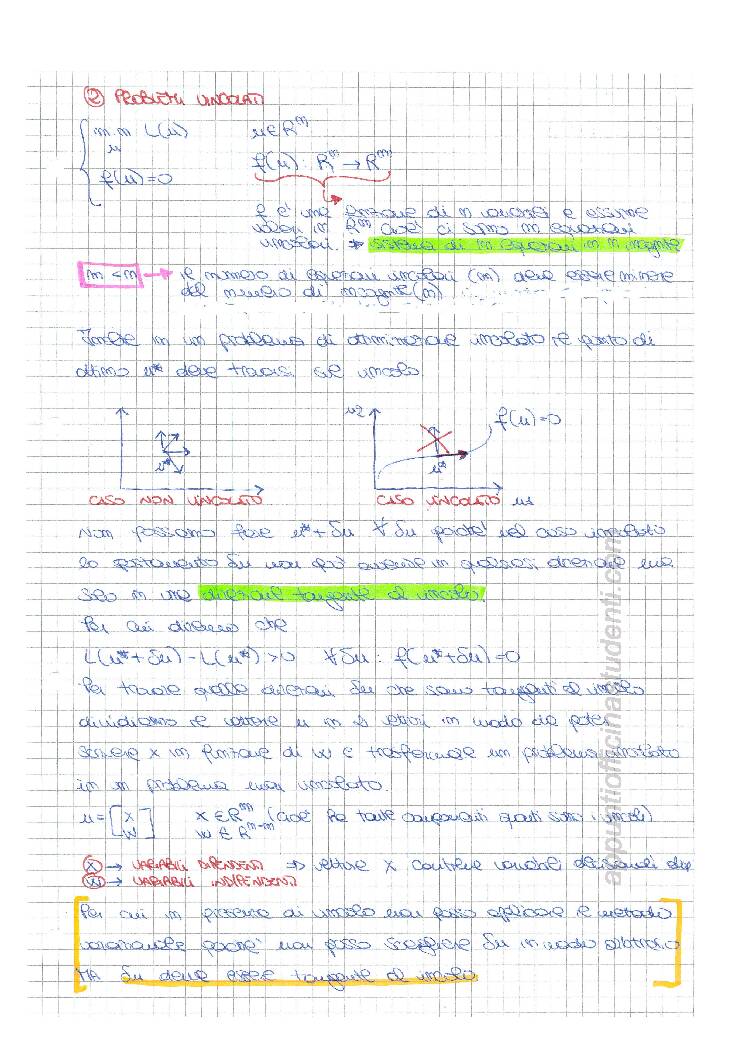 ② PROBLEMI VINCOLATI
min L(u) u ∈ R^n
u
f(u)=0 f(u): R^n → R^m
f è una funzione di n variabili e assume
valori in R^m cioè ci sono m equazioni
vincolari. → sistema di m equazioni in n incognite
m < n → il numero di equazioni vincolari (m) deve essere minore
del numero di incognite (n)
Inoltre in un problema di ottimizzazione vincolato il punto di
ottimo u* deve trovarsi sul vincolo.
u2 f(u)=0
u* u*
CASO NON VINCOLATO CASO VINCOLATO u1
Non possiamo fare u*+δu ∀δu poiché nel caso vincolato
lo spostamento δu non può avvenire in qualsiasi direzione ma
solo in una direzione tangente al vincolo.
Per cui diremo che
L(u*+δu)-L(u*)>0 ∀δu: f(u*+δu)=0
Per trovare quelle direzioni δu che sono tangenti al vincolo
dividiamo il vettore u in 2 vettori in modo da poter
scrivere x in funzione di w e trasformare un problema vincolato
in un problema non vincolato.
u = [x w] x ∈ R^m (cioè ha tante componenti quanti sono i vincoli)
w ∈ R^n-m
x → VARIABILI DIPENDENTI ⇒ vettore x contiene variabili
w → VARIABILI INDIPENDENTI
Per cui in presenza di vincolo non posso applicare il metodo
variazionale poiché non posso scegliere δu in modo arbitrario
MA δu deve essere tangente al vincolo
appuntiofficinastudenti.com